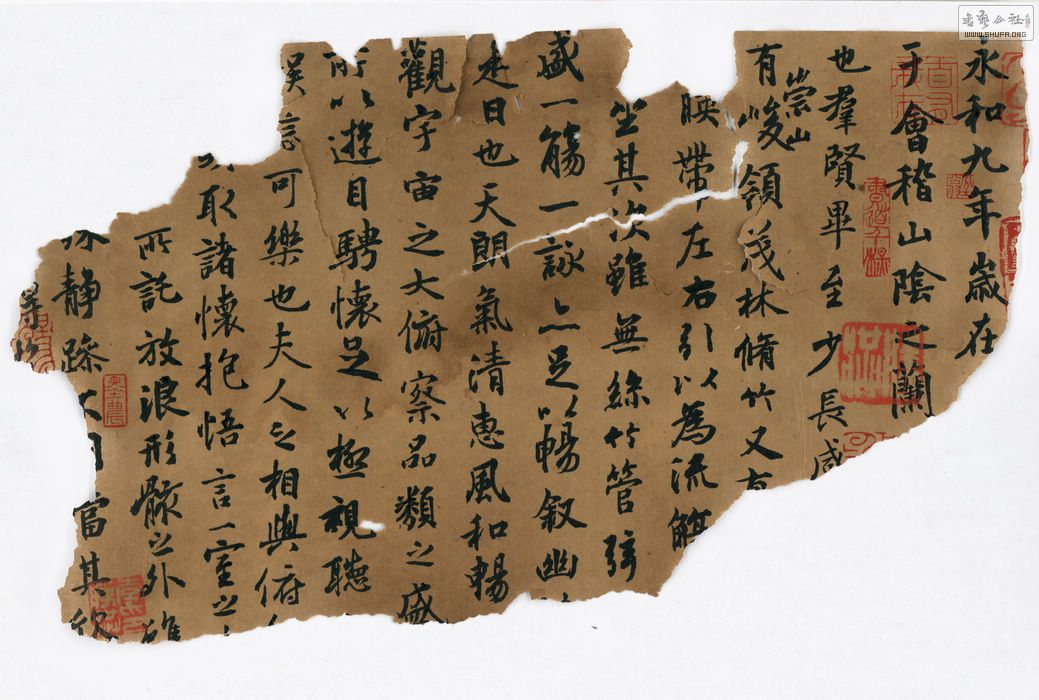 永和九年歲在
于會稽山陰之蘭
也羣賢畢至少長咸
有崇山峻領茂林脩竹又有
暎帶左右引以為流觴
坐其次雖無絲竹管弦
盛一觴一詠亦足以暢叙幽
是日也天朗氣清惠風和暢
觀宇宙之大俯察品類之盛
所以遊目騁懷足以極視聽
娛信可樂也夫人之相與俯
取諸懷抱悟言一室之
所託放浪形骸之外雖
殊靜躁不同當其欣
墨農
書藝公社
WWW.SHUFA.ORG